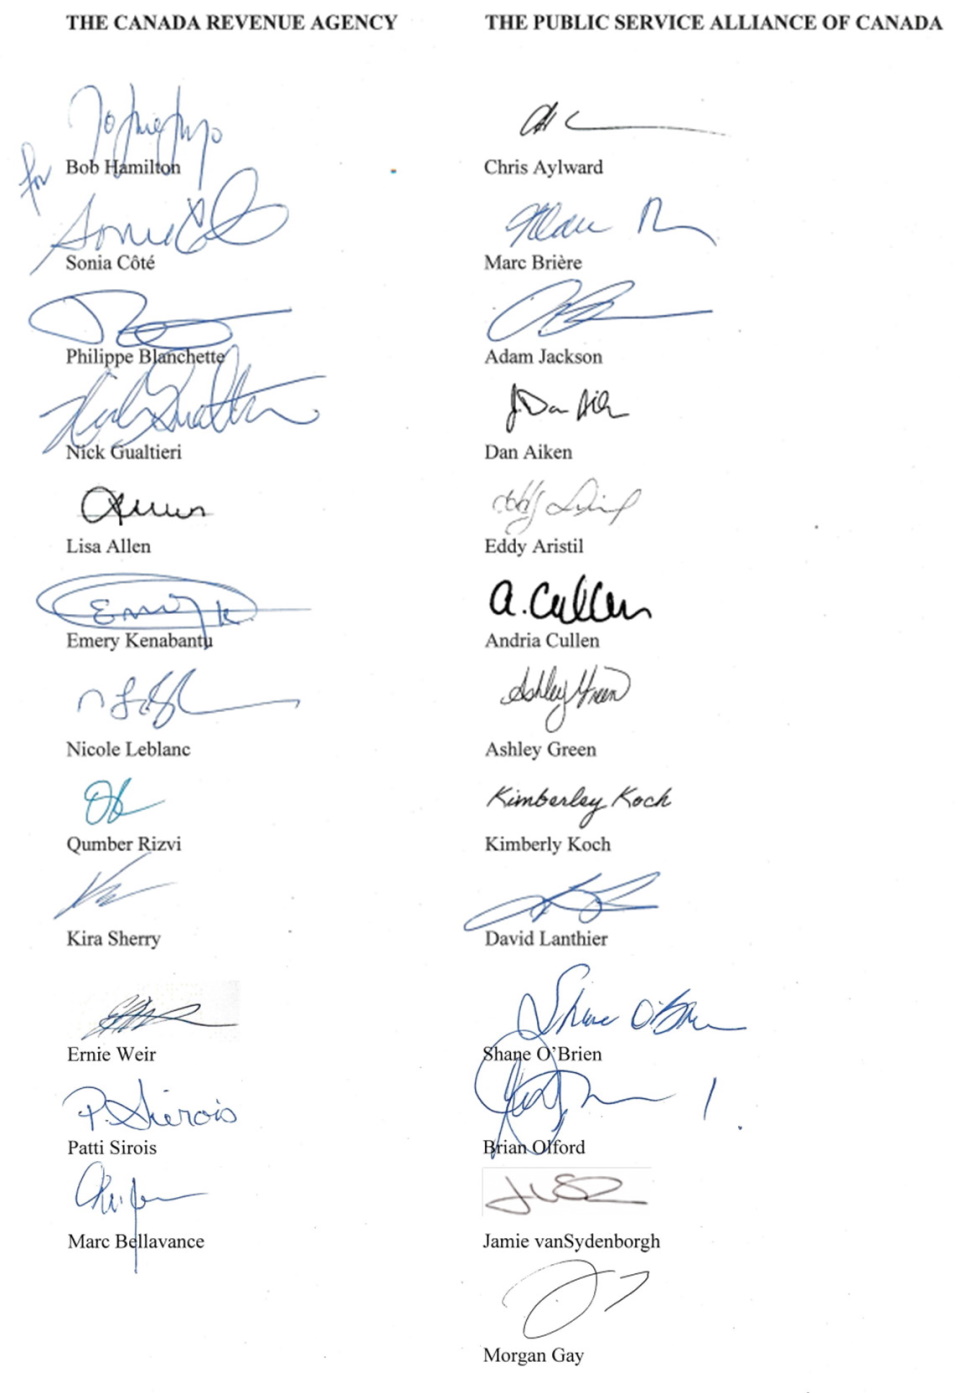 THE CANADA REVENUE AGENCY
for
Bob Hamilton
Sonia
Sonia Côté
Philippe Blanchette
Nick Gualtieri
Nick Gualtieri
Lisa Allen
Emery Kenabantu
Nicole Leblanc
Qumber Rizvi
Kira Sherry
Ernie Weir
P. Sirois
Patti Sirois
Marc Bellavance
THE PUBLIC SERVICE ALLIANCE OF CANADA
Chris Aylward
Marc
Marc Brière
Adam Jackson
J. Dan Aiken
Dan Aiken
Eddy Aristil
A. Cullen
Andria Cullen
Ashley Green
Ashley Green
Kimberley Koch
Kimberly Koch
David Lanthier
Shane O'Brien
Shane O’Brien
Brian Olford
Jamie vanSydenborgh
Morgan Gay